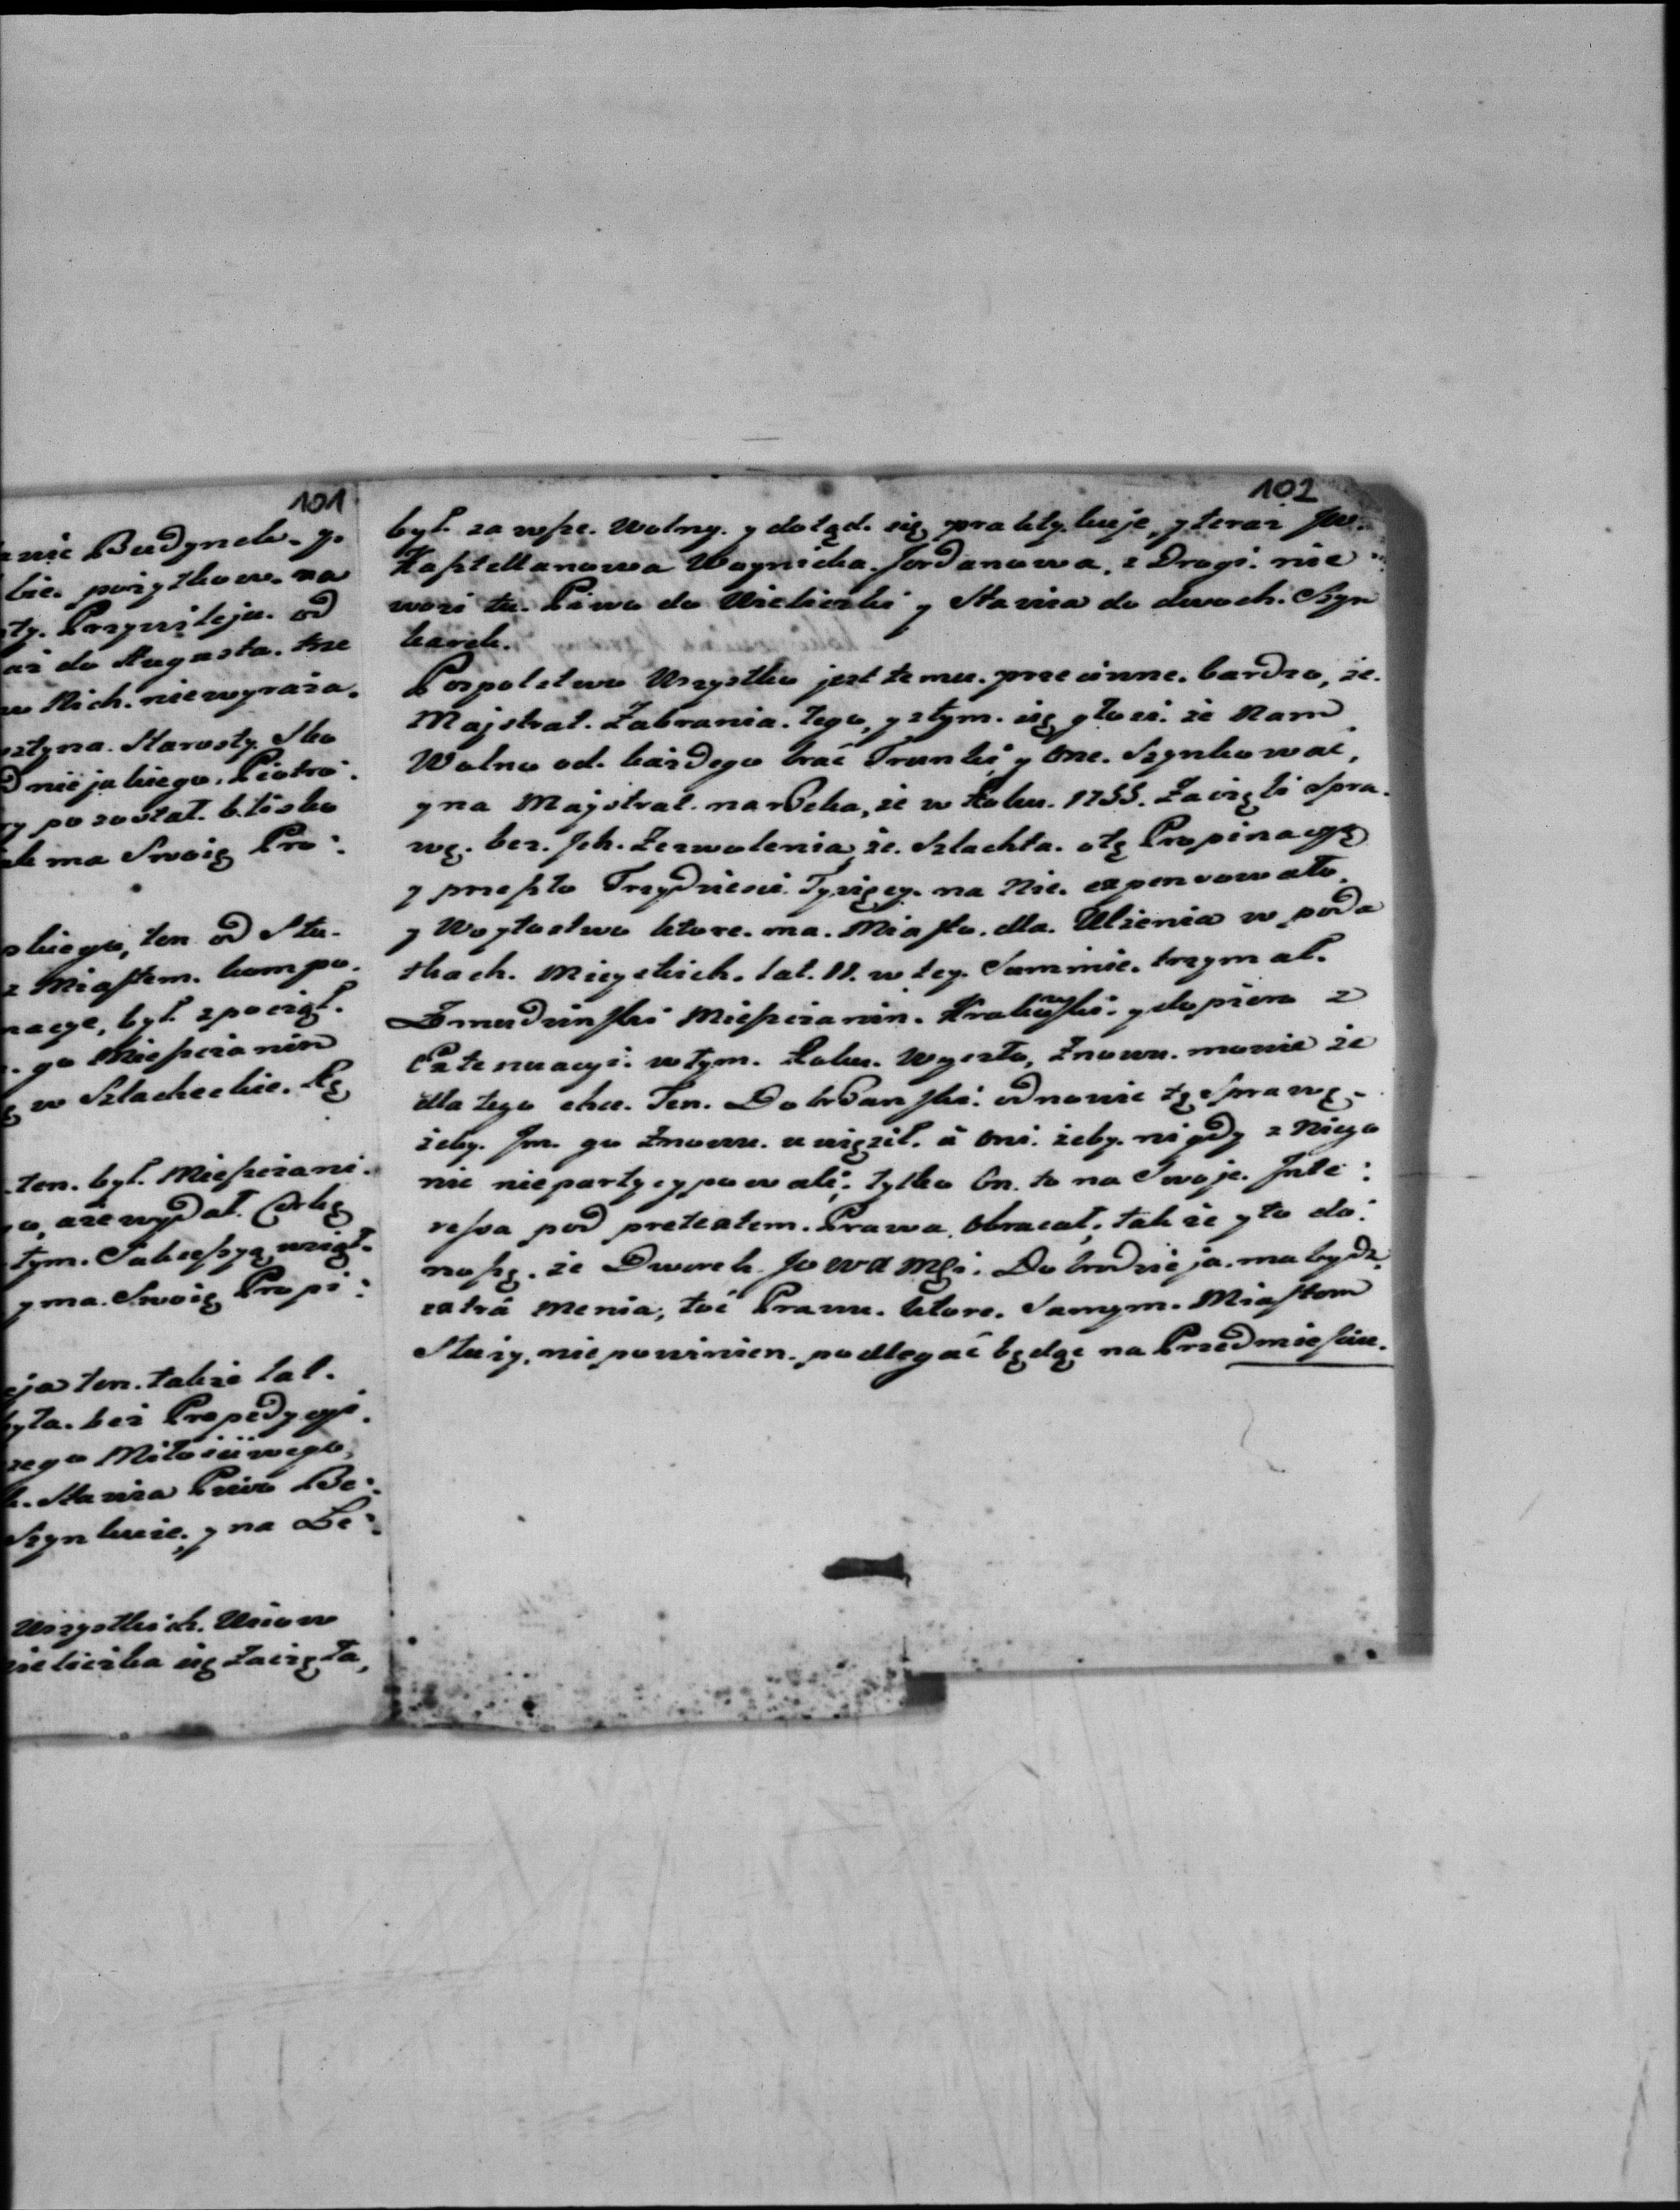 101
Budynek. y.
bie. pożytkow. na
sty. Przywileju. od
aż do Augusta. trze
w Nich. niewyraża.
sztyna. Starosty Sko
niejakiego. Piotro:
ry pozostał. blisko
ma Swoię Pro:
skiego, ten od Stu.
z Miastem. kompo.
nacye, był. zpoczął.
go Mieszczanin
w Szlacheckie. Rę
ten. był. Mieszczani.
go, aże wydał. Corkę
tym. Sukcessyą wziął.
y ma. Swoię Propi:
eja ten. także lat.
była. bez Propedycyi.
szego Miłosciwego
Stawia Piwo Be:
Szynkuie, y na Le:
Wszystkich. Uciow
ieliczka się Zaczęła,
102
był. zawsze. Wolny. y dotąd. się praktykuje, y teraz Jw.
Kasztellanowa Woynicka. Jordanowa, z Drogi. nie
wozi tu. Piwo do Wieliczki y Stawia do dwoch. Szyn
karek.
Pospolstwo Wszystko jest temu. przeciwne. bardzo, że.
Majstrat. Zabrania. tego, y ztym. się głosi. że Nam
Wolno od. każdego brać Trunki, y one. Szynkować,
y na Majstrat. narzeka, że w Roku. 1755. Zaczęli Spra.
wę. bez. Ich. Zezwolenia, że. Szlachta. otę Propinacyę
y przeszło Trzydziesci Tysięcy. na Nie. expensowało,
y Woytostwo ktore. ma. Miasto. dla. Ulżenia w poda
tkach. Mieyskich. lat. 11. w tey. Summie. trzymał.
Zmudzinski Mieszczanin. Krakowski. y dopiero z
Extenuacyi. w tym. Roku. Wyszło, Znowu. mowie że
dla tego chce. Ten. Dobrzanski. odnowic tę Sprawę.
żeby. Im. go Znowu. uwięził. a oni. żeby. nigdy z Niego
nie niepartycypowali; tylko On. to na Swoje. Inte:
ressa pod pretextem. Prawa. obracał; także y to do:
noszę. że Dworek JoWWMSci. Dobrodzieja. ma bydz.
zatrá menia, toć Prawu. ktore. Samym. Miastom
Służy, nie powinien. podlegać będąc na Przedmiesciu.